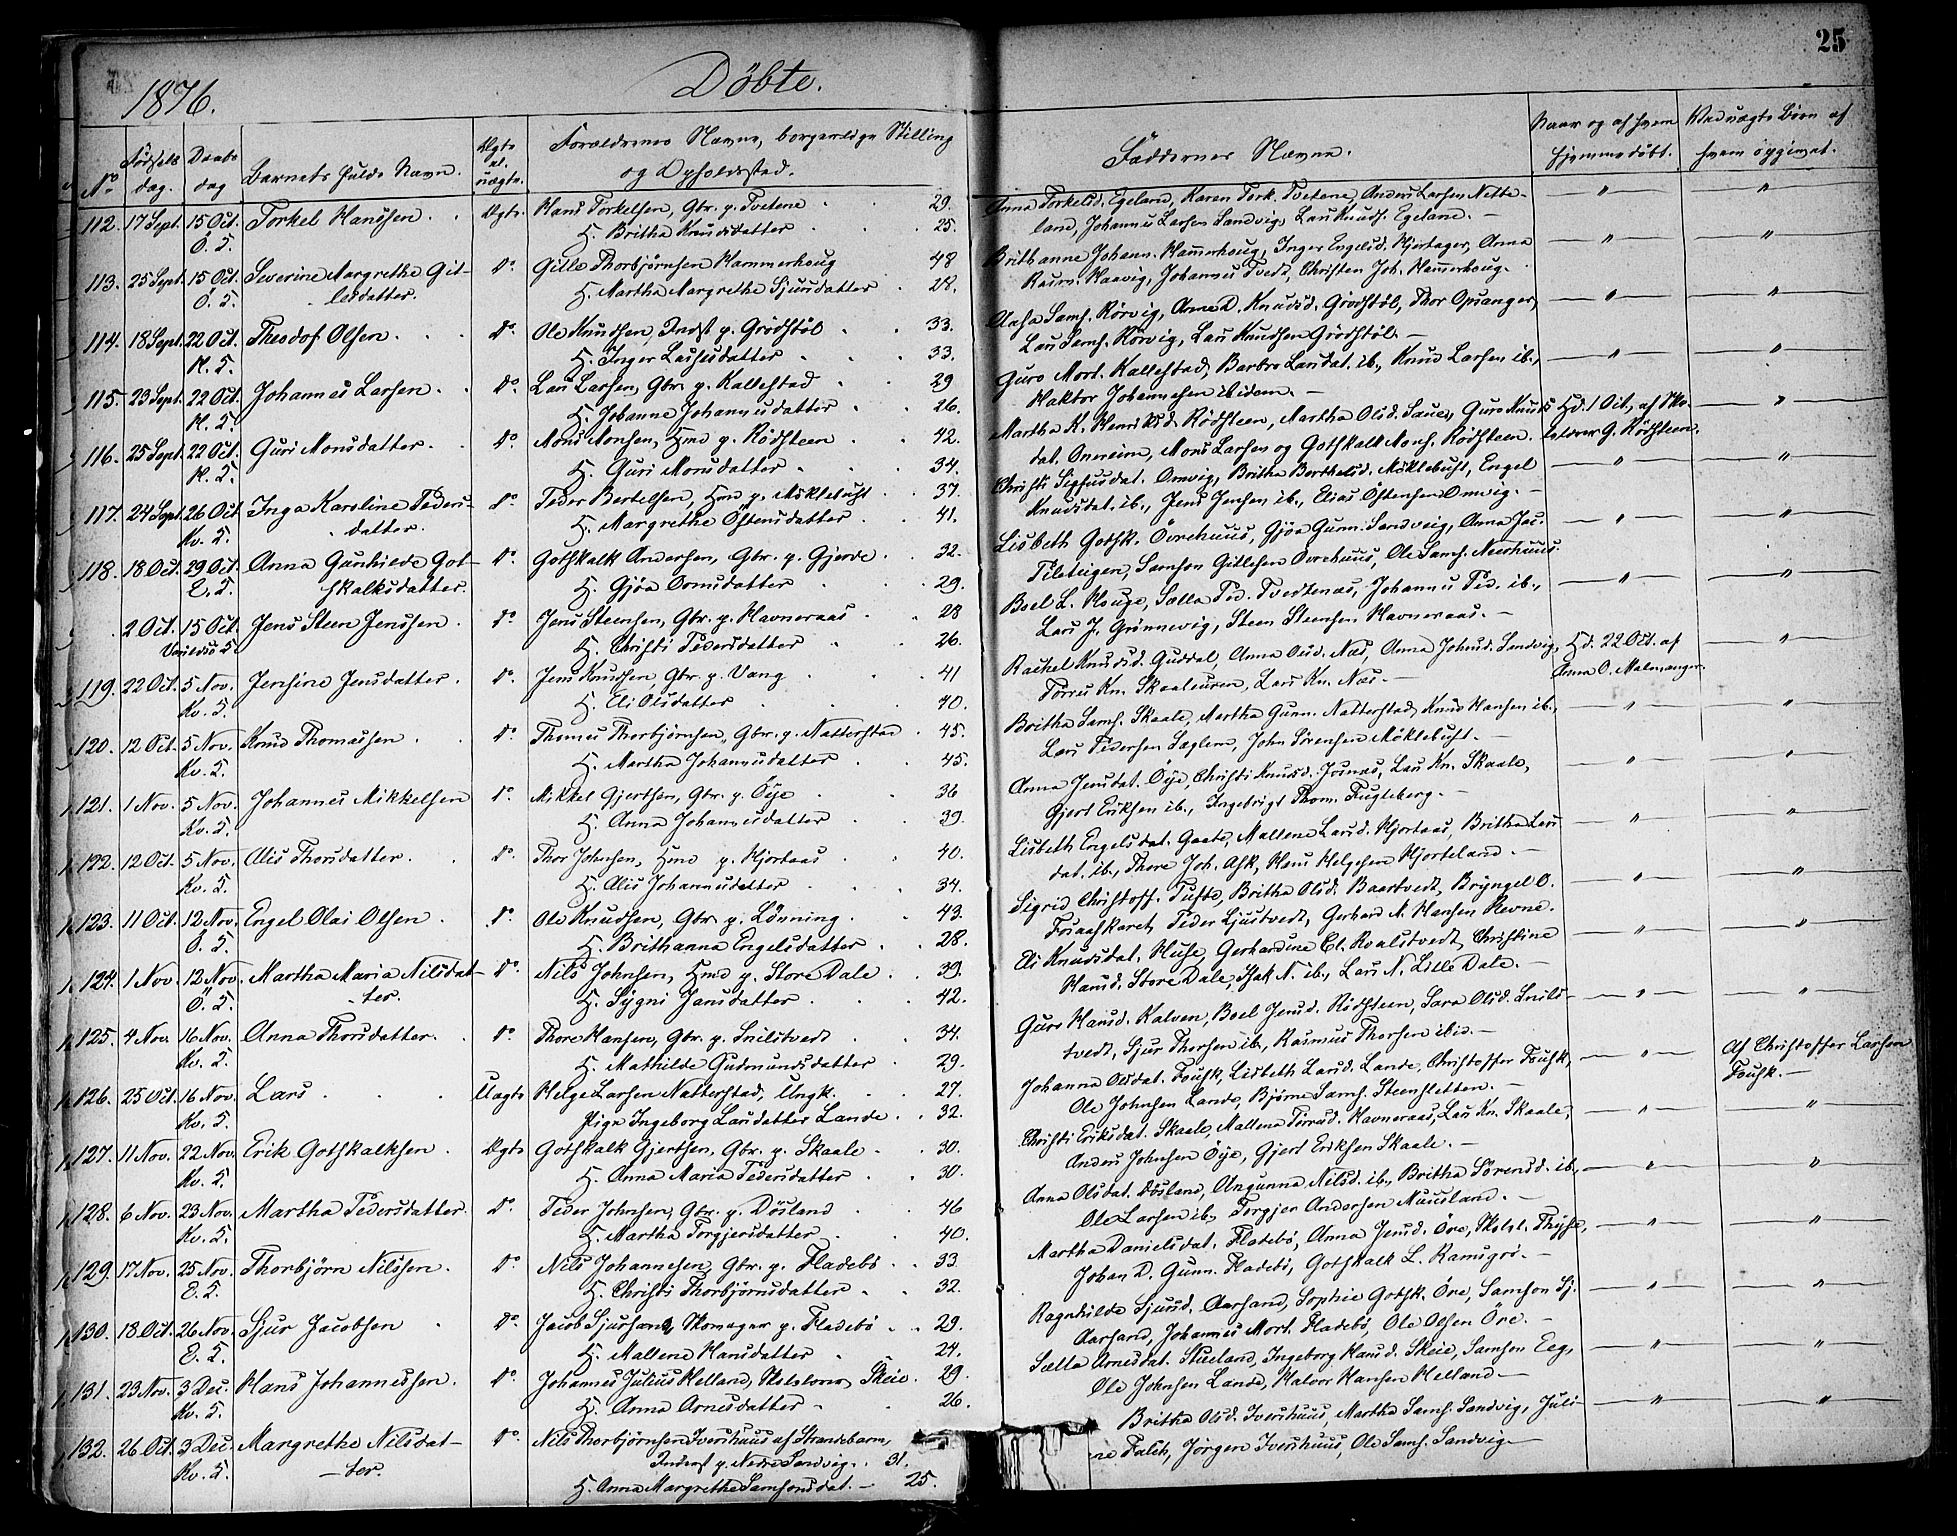 25
1876.
Döbte.
No
Födsels dag.
Daabs dag
Barnets fulde Navn.
Ægte el. uægte.
Forældrenes Navne, borgerlige Stilling
og Opholdssted.
Faddernes Navne.
Naar og af hvem
hjemmedöbt.
Ved uægte Börn af
hvem opgivet.
112. 17 Sept. 15 Oct. Torkel Hanssen. Ægte. Hans Torkelsen, Gbr. p. Tvetene 29.
Ö. S. H. Britha Knudsdatter 25.
Anna Torkelsd. Egeland, Karen Tork. Tvetene, Anders Larsen Nette-
land, Johannes Larsen Sandvig, Lars Knuds. Egeland. —
113. 25 Sept. 15 Oct. Severine Margrethe Git- Do. Gitle Thorbjörnsen Hammerhoug 48
Ö. S. lesdatter. H. Martha Margrethe Sjursdatter 28.
Brithanne Johann. Hammerhoug, Inger Engelsd. Hjertager, Anna
Rasm. Haavig, Johannes Tvedt, Christen Joh. Hammerhoug.
114. 18 Sept. 22 Oct. Theodof Olsen. Do. Ole Knudsen, Indst p. Grödstöl 33.
H. S. H. Inger Lassesdatter 33.
Aasa Sams. Rörvig, Anne D. Knudsd. Grödstöl, Thor Opsanger,
Lars Sams. Rörvig, Lars Knudsen Grödstöl. —
115. 23 Sept. 22 Oct. Johannes Larsen. Do. Lars Larsen, Gbr. p. Kallestad 29
H. S. H. Johanne Johannesdatter 26.
Guro Mort. Kallestad, Barbro Larsdat. ib., Knud Larsen ib.,
Haktor Johannesen ibidem. —
116. 25 Sept. 22 Oct. Guri Monsdatter. Do. Mons Monsen, Hmd p. Rödsteen 42.
H. S. H. Guri Monsdatter 34.
Martha K. Henriksd. Rödsteen, Martha Olsd. Saue, Guro Knuds
dat. Onereim, Mons Larsen og Gotskalk Mons. Rödsteen.
Hd. 1 Oct. af Sko-
lelærer G. Rödsteen.
117. 24 Sept. 26 Oct Inga Karoline Peders- Do. Peder Bertelsen, Hmd p. Möklebust 37.
Kv. S. datter. H. Margrethe Östensdatter 41.
Christi Sigfusdat. Omvig, Britha Berthelsd. Möklebust, Engel
Knudsdat. ib., Jens Jensen ib., Elias Östensen Omvig. —
118. 18 Oct. 29 Oct Anna Gunhilde Got- Do. Gotskalk Andersen, Gbr. p. Gjerde 32.
E. S. skalksdatter. H. Gjöa Ormsdatter 29.
Lisbeth Gotsk. Övrehuus, Gjöa Gunn. Sandveig, Anna Jac.
Teleteigen, Samson Gitlesen Övrehuus, Ole Sams. Neerhuus.
2 Oct. 15 Oct. Jens Steen Jenssen. Do. Jens Steensen, Gbr. p. Havneraas 28
Varildsö S. H. Christi Pedersdatter 26.
Boel L. Houge, Salla Ped. Tvedtenæs, Johannes Ped. ib.,
Lars J. Grönnevig, Steen Steensen Havneraas. —
119. 22 Oct. 5 Nov. Jensine Jensdatter. Do. Jens Knudsen, Gbr. p. Vang 41
Kv. S. H. Eli Olsdatter 40.
Rachel Knudsd. Guddal, Anna Olsd. Næs, Anna Johnsd. Sandvig,
Torres Kn. Skaaleuren, Lars Kn. Næs. —
Hd. 22 Oct. af
Anna O. Malmanger.
120. 12 Oct. 5 Nov. Knud Thomassen. Do. Thomas Thorbjörnsen, Gbr. p. Natterstad 45.
Kv. S. H. Martha Johannesdatter 45.
Britha Sams. Skaale, Martha Gunn. Natterstad, Knud Hansen ib.,
Lars Pedersen Saglem, John Sörensen Möklebust. —
121. 1 Nov. 5 Nov. Johannes Mikkelsen Do. Mikkel Gjertsen, Gbr. p. Öye 36
Kv. S. H. Anna Johannesdatter 39.
Anna Jensdat. Öye, Christi Knudsd. Jernæs, Lars Kn. Skaale,
Gjert Eriksen ib., Ingebrigt Thom. Fugleberg. —
122. 12 Oct. 5 Nov. Alis Thorsdatter. Do. Thor Johnsen, Hmd p. Hjortaas 40.
Kv. S. H. Alis Johannesdatter 34.
Lisbeth Engelsdat. Gaate, Mallene Larsd. Hjortaas, Britha Lars
dat. ib., Thore Joh. Ask, Hans Helgesen Hjorteland. —
123. 11 Oct. 12 Nov. Engel Olai Olsen. Do. Ole Knudsen, Gbr. p. Lövning 43.
Ö. S. H. Brithanna Engelsdatter 28.
Sigrid Christoff. Tufte, Britha Olsd. Baartvedt, Bryngel O.
Fosaaskaret, Peder Ljustvedt, Gerhard M. Hansen Revne.
124. 1 Nov. 12 Nov. Martha Maria Nilsdat- Do. Nils Johnsen, Hmd p. Store Dale 39.
Ö. S. ter. H. Sygni Jansdatter 42.
Eli Knudsdat. Huse, Gerhardine El. Roalstvedt, Christine
Hansd. Store Dale, Isak N. ib., Lars N. Lille Dale. —
125. 4 Nov. 16 Nov. Anna Thorsdatter. Do. Thore Hansen, Gbr. p. Snilstvedt 34.
Kv. S. H. Mathilde Gudmundsdatter 29.
Guro Hansd. Kalven, Boel Jensd. Rödsteen, Sara Olsd. Snils-
tvedt, Sjur Thorsen ib., Rasmus Thorsen ibid. —
126. 25 Oct. 16 Nov. Lars Uægte Helge Larsen Natterstad, Ungk. 27.
Kv. S. Pige Ingeborg Larsdatter Lande 32.
Johanna Olsdat. Fousk, Lisbeth Larsd. Lande, Christoffer Fousk,
Ole Johnsen Lande, Björne Sams. Steensletten. —
Af Christoffer Larsen
Fousk. —
127. 11 Nov. 22 Nov. Erik Gotskalksen. Ægte Gotskalk Gjertsen, Gbr. p. Skaale 30.
Kv. S. H. Anna Maria Pedersdatter 30.
Christi Eriksdat. Skaale, Mallene Torresd. Havneraas, Lars Kn. Skaale,
Anders Johnsen Öye, Gjert Eriksen Skaale. —
128. 6 Nov. 23 Nov. Martha Pedersdatter. Do. Peder Johnsen, Gbr. p. Dösland 46
Kv. S. H. Martha Torgjersdatter 40.
Anna Olsdat. Dösland, Angunna Nilsd. ib., Britha Sörensd. ib.,
Ole Larsen ib., Torgjer Andersen Nuusland. —
129. 17 Nov. 25 Nov. Thorbjörn Nilssen. Do. Nils Johannesen, Gbr. p. Fladebö 33
E. S. H. Christi Thorbjörnsdatter 32.
Martha Danielsdat. Fladebö, Anna Jensd. Öre, Skolel. Thysse,
Johan D. Gunn. Fladebö, Gotskalk L. Ramsgrö. —
130. 18 Oct. 26 Nov. Sjur Jacobsen Do. Jacob Sjursen, Skomager p. Fladebö 29.
E. S. H. Mallene Hansdatter 24.
Ragnhilde Sjursd. Aarsand, Sophie Gotsk. Öre, Samson Sj.
Aarsand, Johannes Mort. Fladebö, Ole Olsen Öre. —
131. 23 Nov. 3 Dec. Hans Johannessen. Do. Johannes Julius Helland, Skolelærer, Skeie. 29.
Kv. S. H. Anna Arnesdatter 26.
Salla Arnesdat. Stueland, Ingeborg Hansd. Skeie, Samson Eeg,
Ole Johnsen Lande, Halvor Hansen Helland. —
132. 26 Oct. 3 Dec. Margrethe Nilsdat- Do. Nils Thorbjörnsen Ivershuus af Strandebarm,
Kv. S. —ter. Inderst p. Nedre Sandvig. 31.
H. Anna Margrethe Samsonsdat. — 25.
Britha Olsd. Ivershuus, Martha Sams. Sandvig, Juli-
ne Falch, Jörgen Ivershuus, Ole Sams. Sandvig —